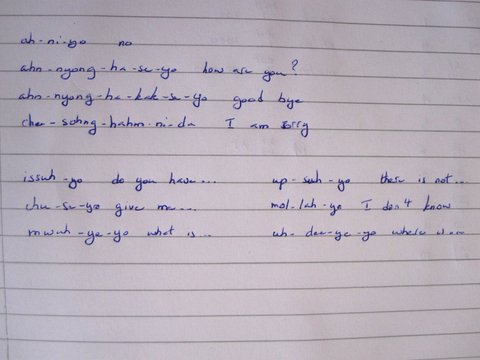 ah-ni-yo no
ahn-nyong-ha-se-yo how are you?
ahn-nyong-ha-kak-se-yo good bye
che-sohng-hahm-ni-da I am sorry
issuh-yo do you have...
up-suh-yo there is not...
chu-se-yo give me...
mol-lah-yo I don't know
mwuh-ye-yo what is...
uh-dee-ye-yo where is...